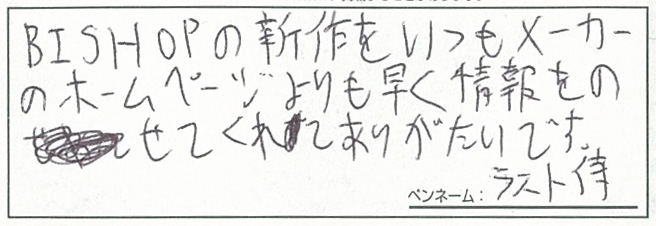 BISHOPの新作をいつもメーカー
のホームページよりも早く情報をの
せてくれてありがたいです。
ペンネーム：ラスト侍